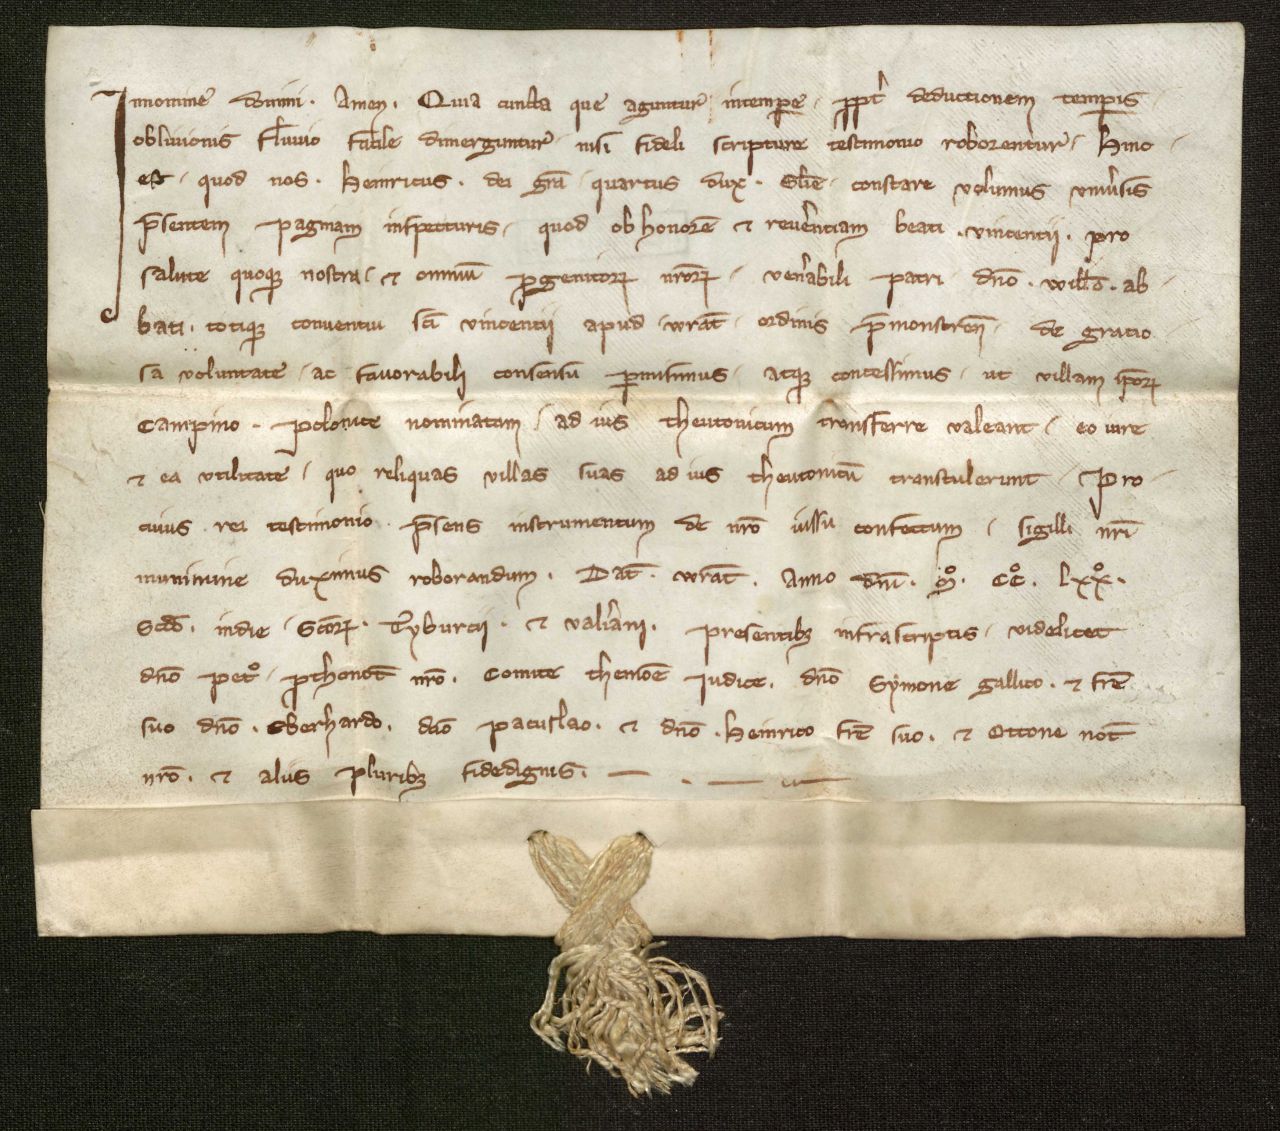 Innomine domini . Amen . Quia cuncta que aguntur intempore . propter deductionem temporis
oblivionis fluvio facile dimerguntur . nisi fideli scripture testimonio roborentur . Hinc
est . quod nos . Heinricus . dei grā . quartus dux . Slēe . constare volumus univ̓sis
p̄sentem paginam inspecturis . quod ob honorē ⁊ rev̓entiam beati . vincentii . pro
salute quoqꝫ nostra . ⁊ omniū ꝓgenitoꝝ nr̄oꝝ . ven̓abili patri dn̄o . will̄o . ab
bati . totiqꝫ conventui sc̄i vincentii apud wrat̄ . ordinis p̄monstren̄ . de gratio
sa voluntate . ac favorabili consensu ꝑmisimus . atqꝫ concessimus . ut villam ip̄oꝝ
Campino . polonice nominatam . ad ius theutonicum transferre valeant . eo iure
⁊ ea utilitate . quo reliquas villas suas ad ius theutonicū transtulerunt . Pro
cuius rei testimonio . p̄sens instrumentum de nr̄o iussu confectum . sigilli nr̄i
munimine duximus roborandum . Dat̄ . wrat̄ . Anno dn̄i . mͦ . ccͦ . lxxͦ .
Scd̄o . indie . Sc̄oꝝ . Tyburcii . ⁊ valīani . presentibꝫ infrascriptis . videlicet
dn̄o petͦ . ꝓthonot̄ nr̄o . Comite themōe iudice . dn̄o Symone gallico . ⁊ fr̄e
suo dn̄o . Eberhardo . dn̄o pacuslao . ⁊ dn̄o . Heinrico fr̄e suo . ⁊ Ottone not̄
nr̄o . ⁊ aliis pluribꝫ fidedignis .